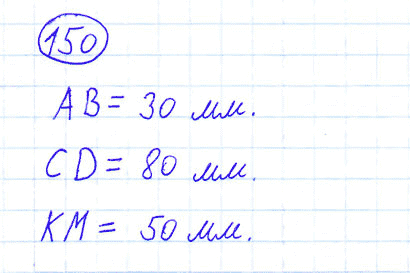 150
AB = 30 мм.
CD = 80 мм.
KM = 50 мм.